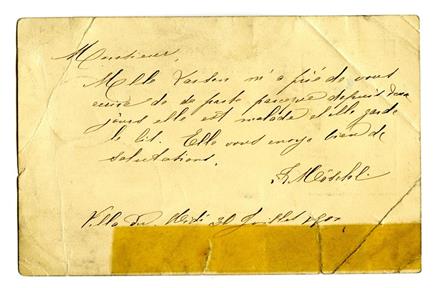 Monsieur,
Mlle m'a prié de vous
de sa part parceque depuis deux
jours elle est malade et elle garde
le lit. Elle vous envoye bien de
salutations.
Villa du Midi 30 Juillet